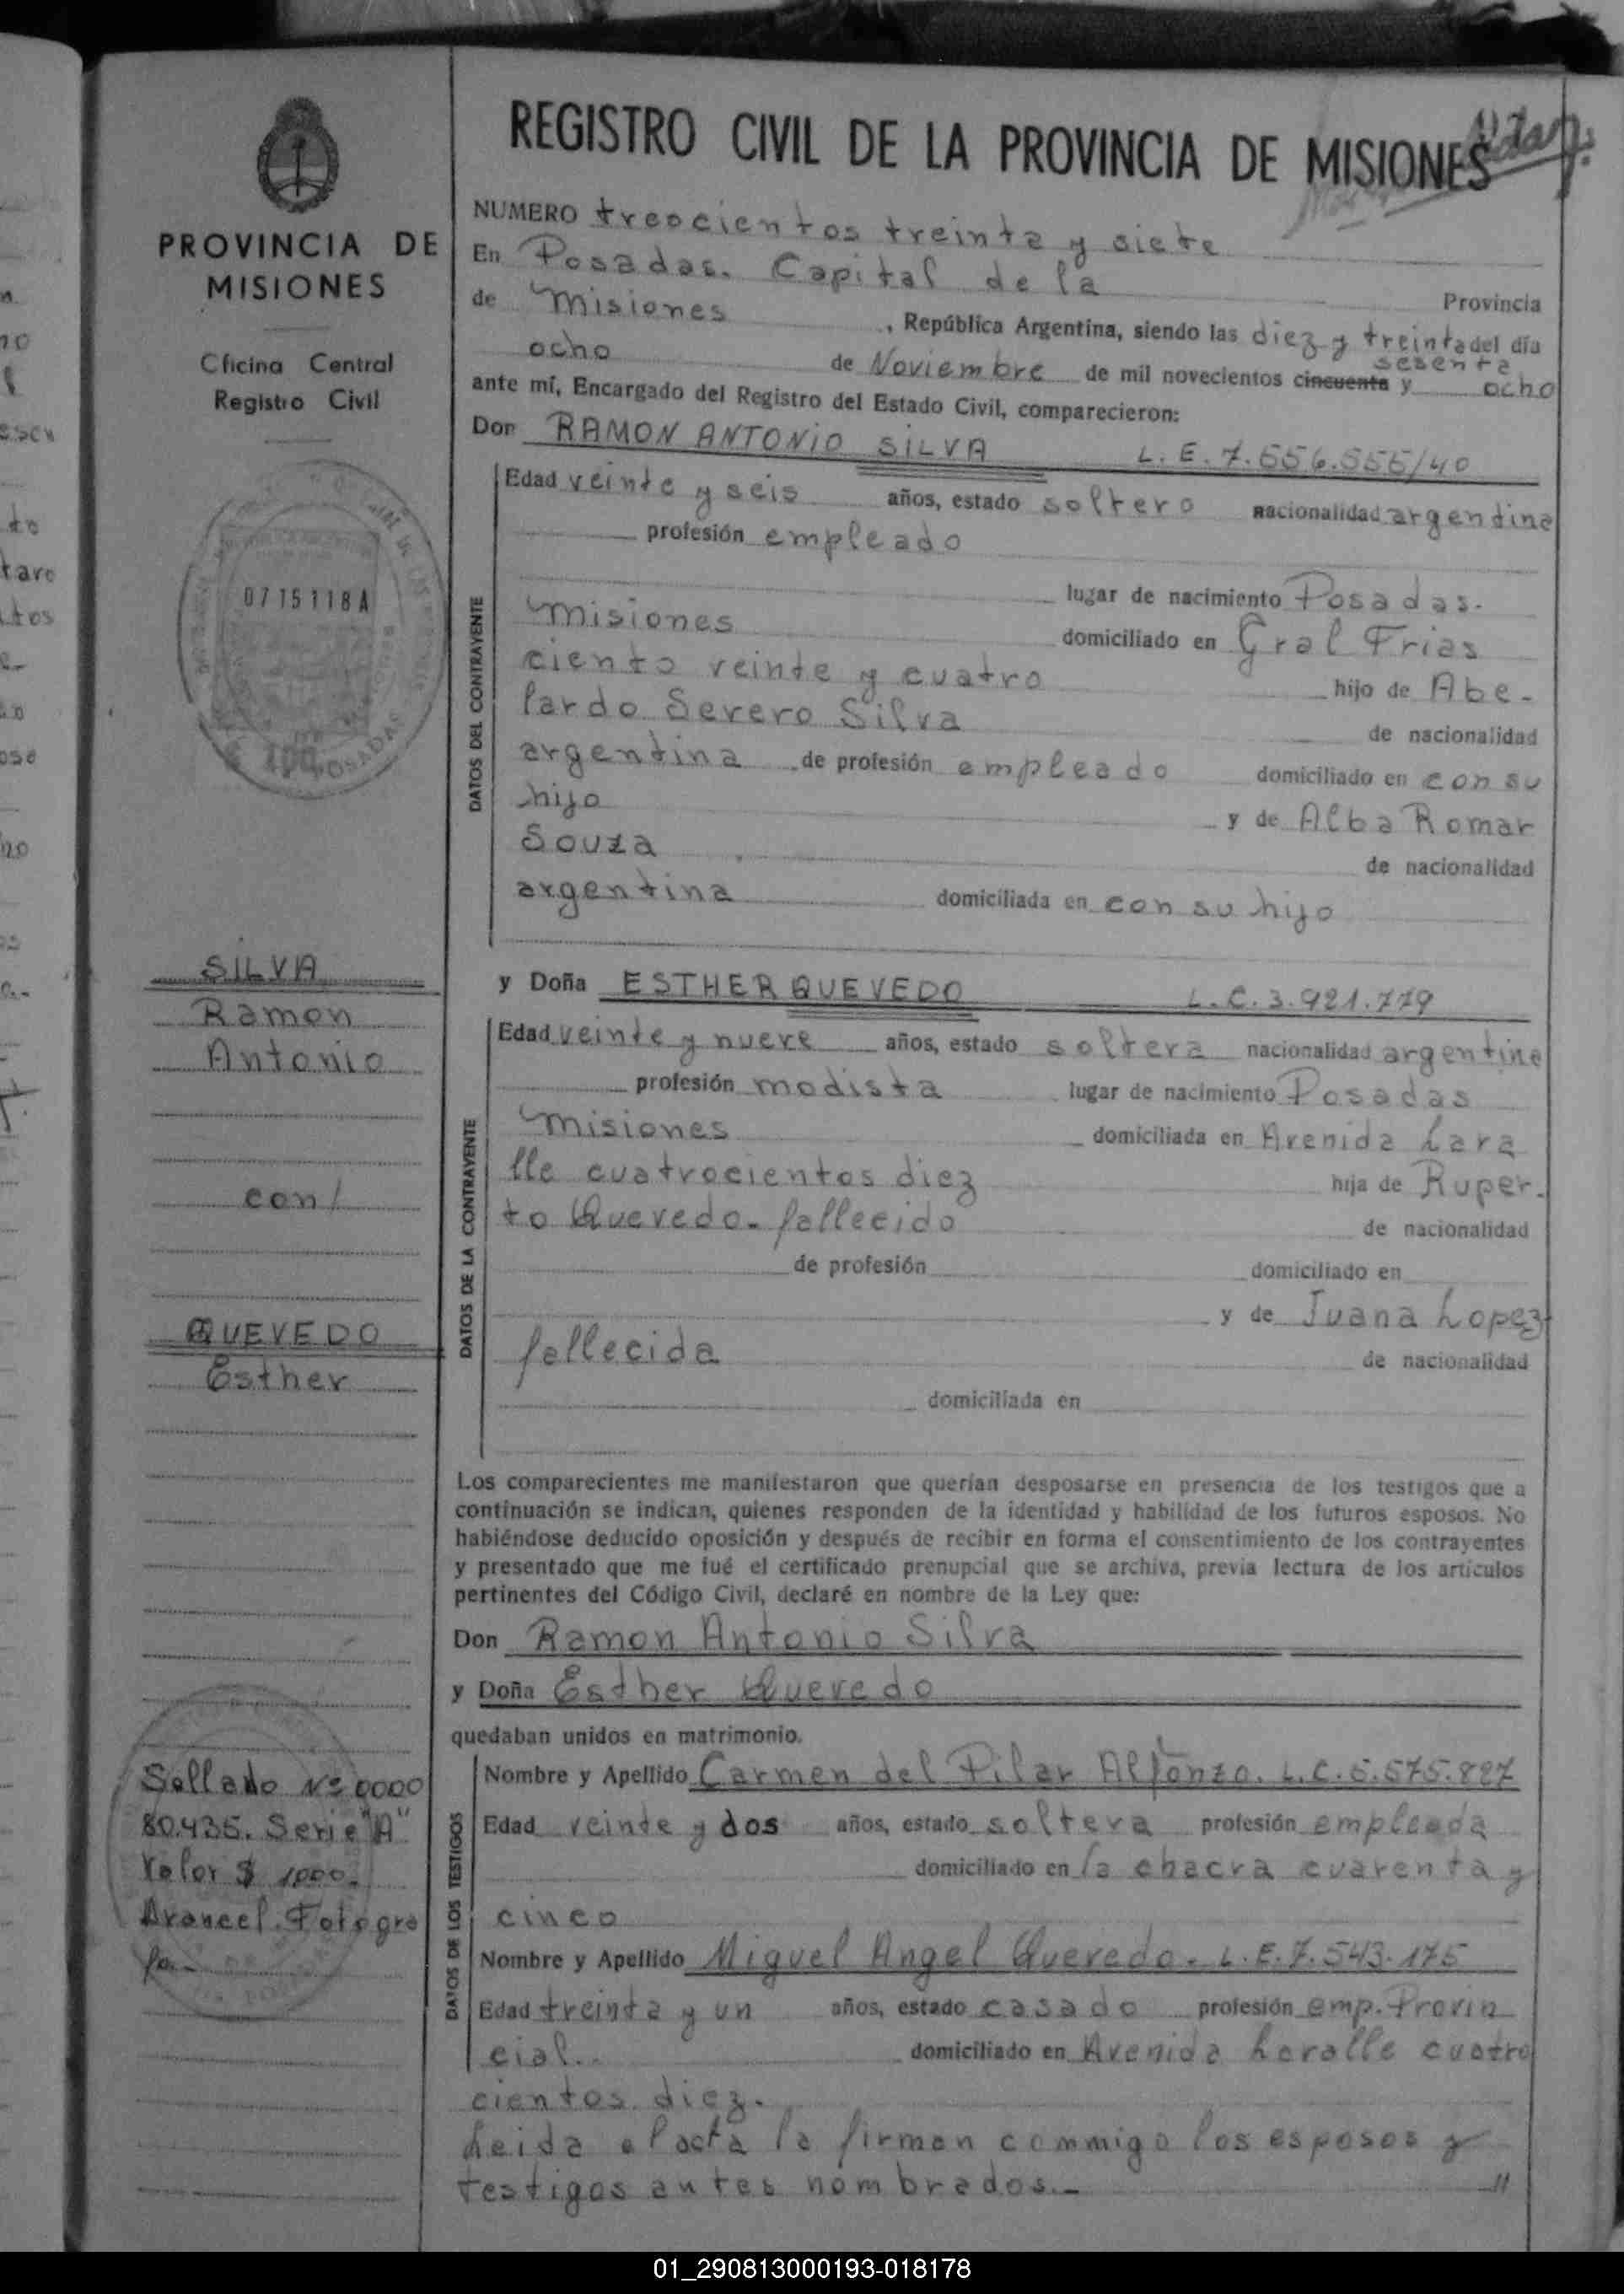 REGISTRO CIVIL DE LA PROVINCIA DE MISIONES
PROVINCIA DE
MISIONES
Oficina Central
Registro Civil
0715118A
POSADAS
SILVA
Ramon
Antonio
con/
QUEVEDO
Esther
Sellado Nº 0000
80.435. Serie "A"
Valor $ 1000.
Arancel. Fotogra
fa.-
NUMERO treocientos treinta y siete
En Posadas. Capital de la Provincia
de Misiones, República Argentina, siendo las diez y treinta del día
sesenta
ocho de Noviembre de mil novecientos cincuenta y ocho
ante mí, Encargado del Registro del Estado Civil, comparecieron:
Don RAMON ANTONIO SILVA L. E. 7.556.555/40
DATOS DEL CONTRAYENTE
Edad veinte y seis años, estado soltero nacionalidad argentina
profesión empleado
lugar de nacimiento Posadas.
Misiones domiciliado en Gral Frias
ciento veinte y cuatro hijo de Abe-
lardo Severo Silva de nacionalidad
argentina de profesión empleado domiciliado en con su
hijo y de Alba Romar
Souza de nacionalidad
argentina domiciliada en con su hijo
y Doña ESTHER QUEVEDO L.C. 3.921.779
DATOS DE LA CONTRAYENTE
Edad veinte y nueve años, estado soltera nacionalidad argentina
profesión modista lugar de nacimiento Posadas
Misiones domiciliada en Avenida Lara
lle cuatrocientos diez hija de Ruper-
to Quevedo. fallecido de nacionalidad
de profesión domiciliado en
y de Juana Lopez
fallecida de nacionalidad
domiciliada en
Los comparecientes me manifestaron que querían desposarse en presencia de los testigos que a
continuación se indican, quienes responden de la identidad y habilidad de los futuros esposos. No
habiéndose deducido oposición y después de recibir en forma el consentimiento de los contrayentes
y presentado que me fué el certificado prenupcial que se archiva, previa lectura de los artículos
pertinentes del Código Civil, declaré en nombre de la Ley que:
Don Ramon Antonio Silva
y Doña Esther Quevedo
quedaban unidos en matrimonio.
DATOS DE LOS TESTIGOS
Nombre y Apellido Carmen del Pilar Alfonzo. L.C. 5.575.827
Edad veinte y dos años, estado soltera profesión empleada
domiciliado en la chacra cuarenta y
cinco
Nombre y Apellido Miguel Angel Quevedo. L.E. 7.543.175
Edad treinta y un años, estado casado profesión emp. Provin
cial. domiciliado en Avenida Laralle cuatro
cientos diez.
Leida el acta la firman commigo los esposos y
testigos antes nombrados.- "
01_290813000193-018178